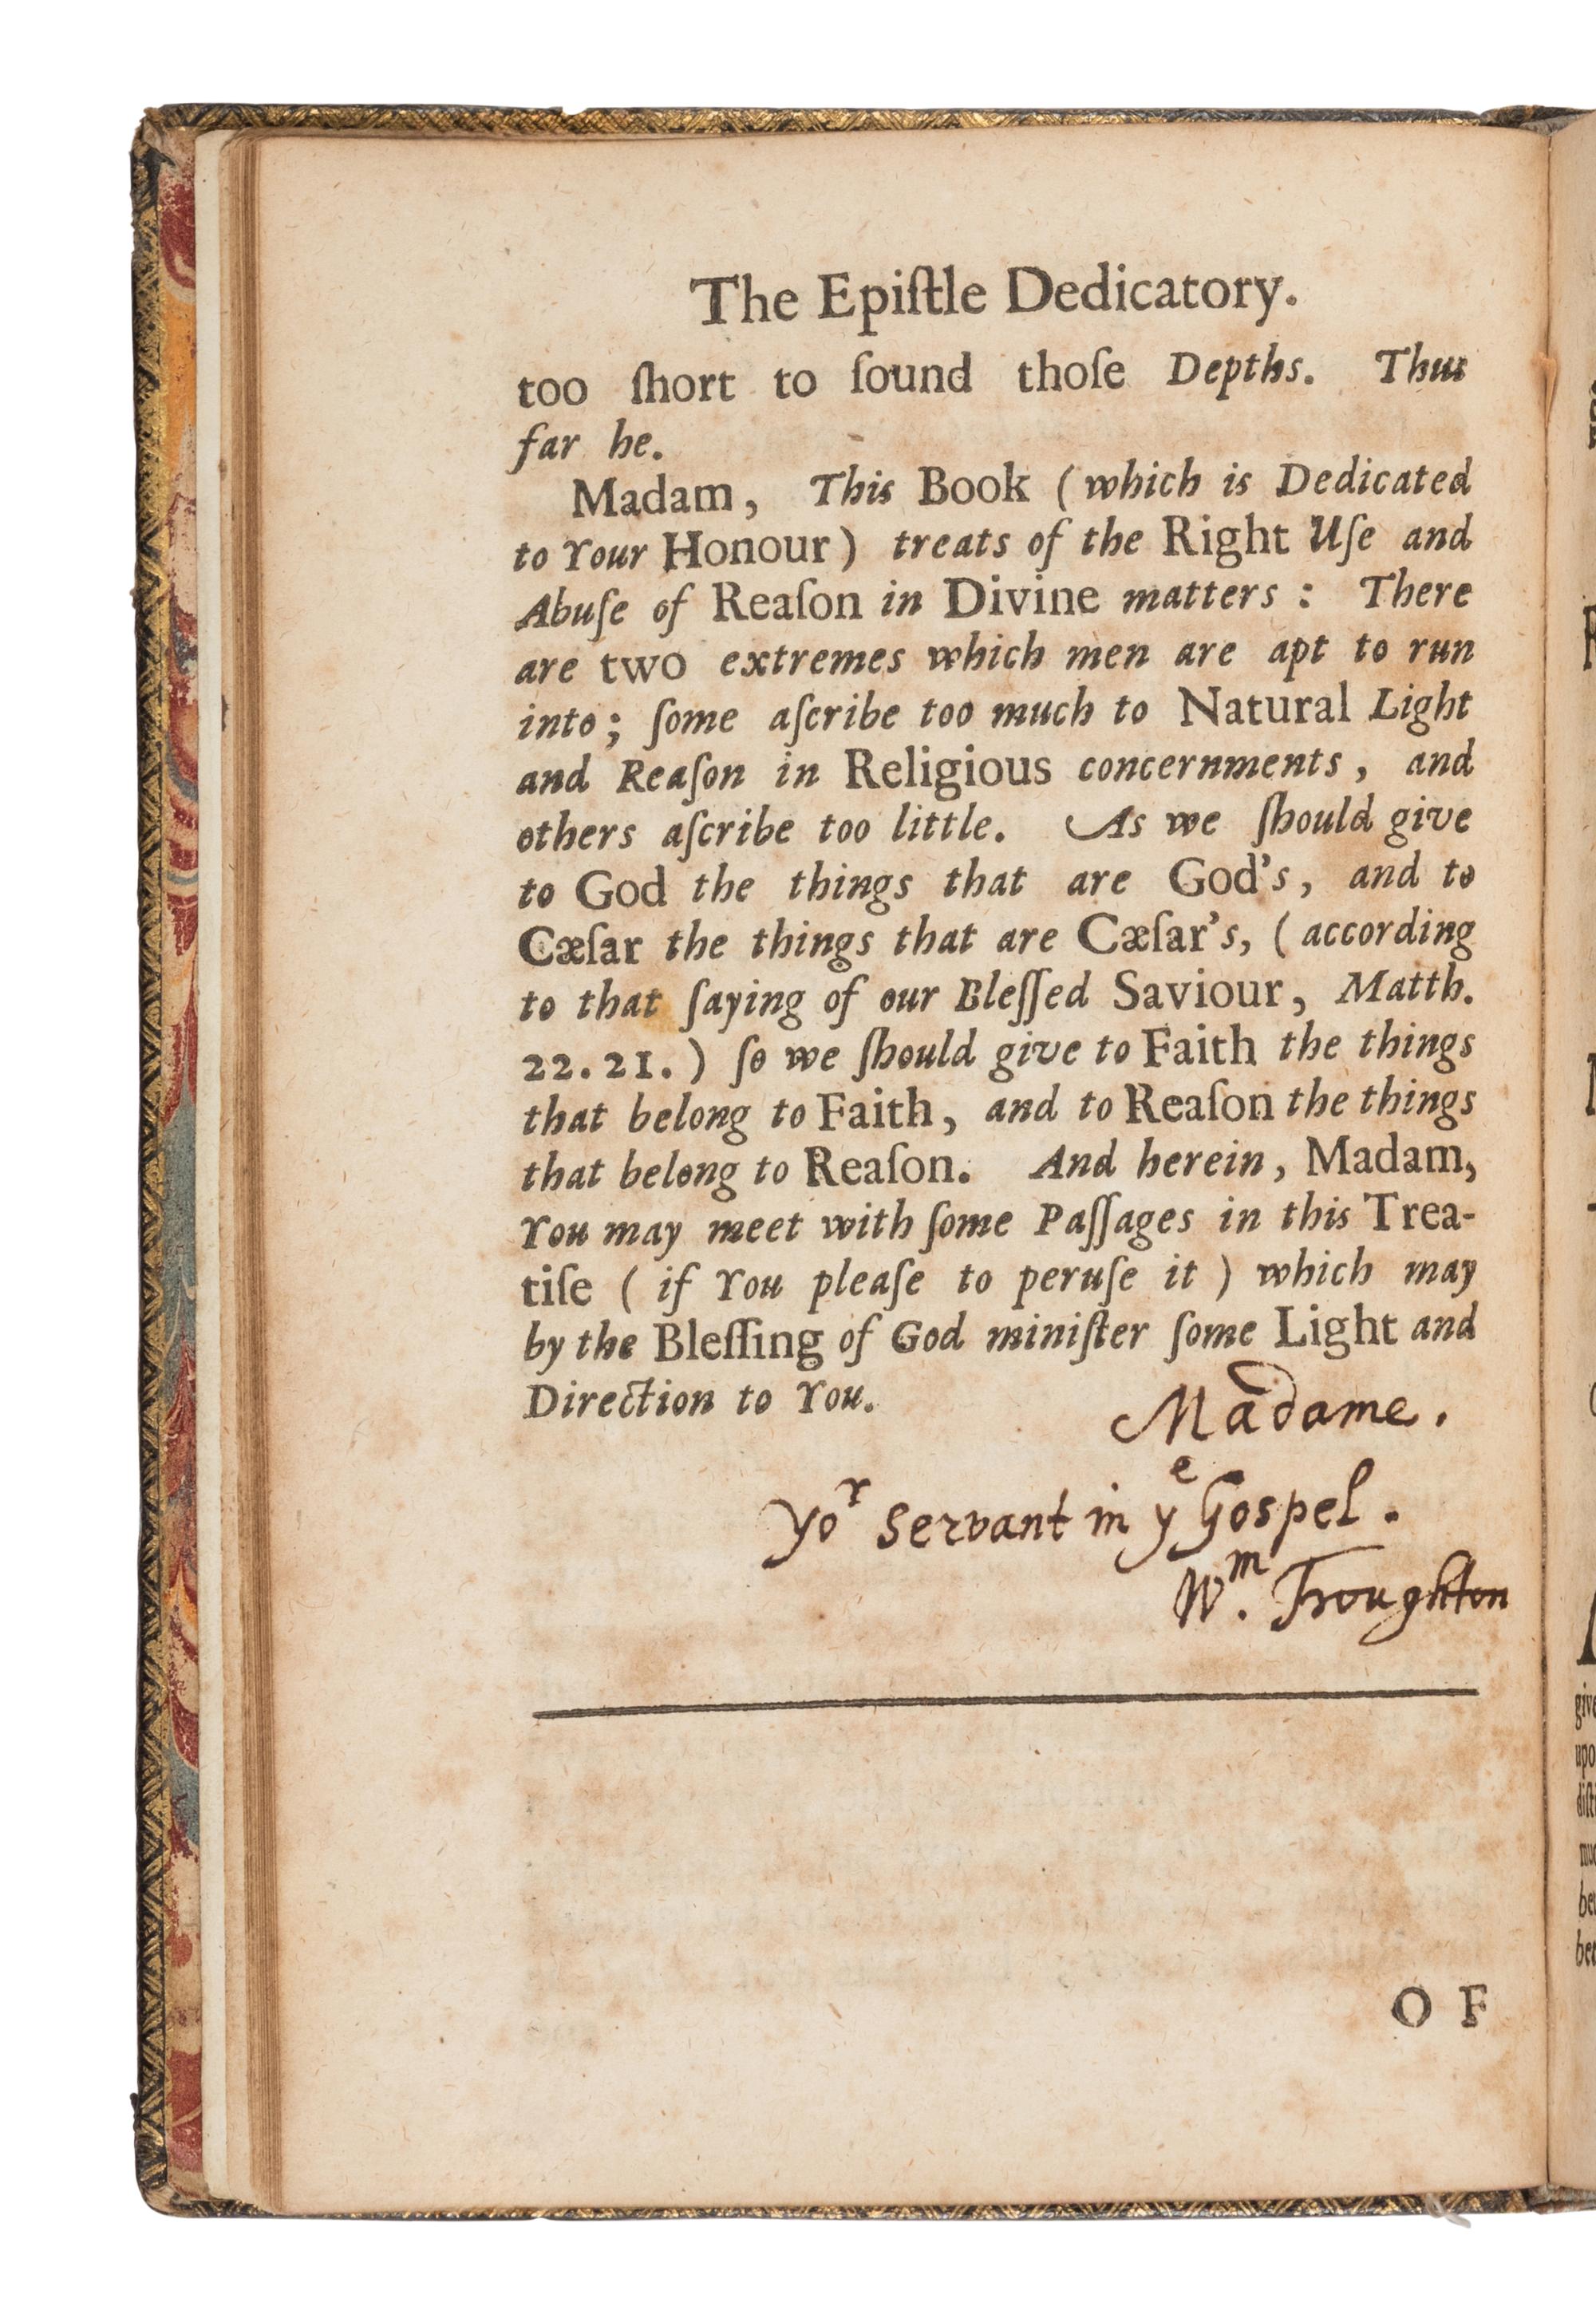 The Epiſtle Dedicatory.
too ſhort to ſound thoſe Depths. Thus
far he.
Madam, This Book (which is Dedicated
to Your Honour) treats of the Right Uſe and
Abuſe of Reaſon in Divine matters: There
are two extremes which men are apt to run
into; ſome aſcribe too much to Natural Light
and Reaſon in Religious concernments, and
others aſcribe too little. As we ſhould give
to God the things that are God's, and to
Cæſar the things that are Cæſar's, (according
to that ſaying of our Bleſſed Saviour, Matth.
22.21.) ſo we ſhould give to Faith the things
that belong to Faith, and to Reaſon the things
that belong to Reaſon. And herein, Madam,
You may meet with ſome Paſſages in this Trea-
tiſe (if You pleaſe to peruſe it) which may
by the Bleſſing of God miniſter ſome Light and
Direction to You.
Madame.
Yoʳ Servant in yᵉ Gospel.
Wᵐ. Troughton
OF
give
upo